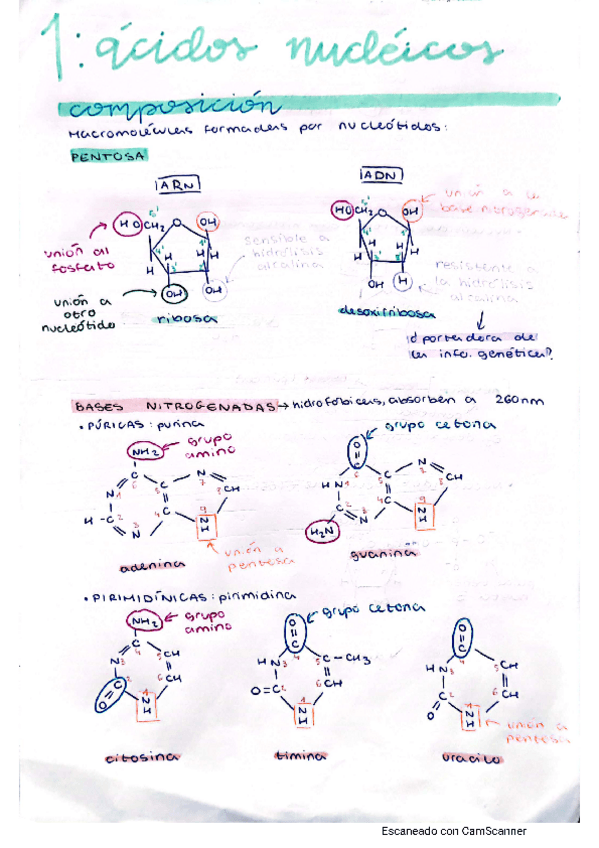 1: ácidos nucléicos
composición
Macromoléculas formadas por nucleótidos:
PENTOSA
ARN
ADN
unión a la
base nitrogenada
HO CH2 O OH
HO CH2 O OH
unión al
fosfato
sensible a
hidrólisis
alcalina
resistente a
la hidrólisis
alcalina
H H H H
H H H H
OH OH
OH H
unión a
otro
nucleótido
ribosa
desoxirribosa
¿portadora de
la info. genética?
BASES NITROGENADAS → hidrofóbicas, absorben a 260nm
• PÚRICAS: purina
grupo cetona
NH2
grupo
amino
O
C
C
N
N
CH
H-C
N
C
C
NH
HN
C
C
N
CH
H2N
C
N
C
NH
unión a
pentosa
adenina
guanina
• PIRIMIDÍNICAS: pirimidina
NH2
grupo
amino
grupo cetona
O
C
O
C
N3
C
CH
CH
O
C
NH
HN3
C-CH3
CH
O=C2
NH
HN3
CH
CH
C
O
NH
unión a
pentosa
citosina
timina
uracilo
Escaneado con CamScanner